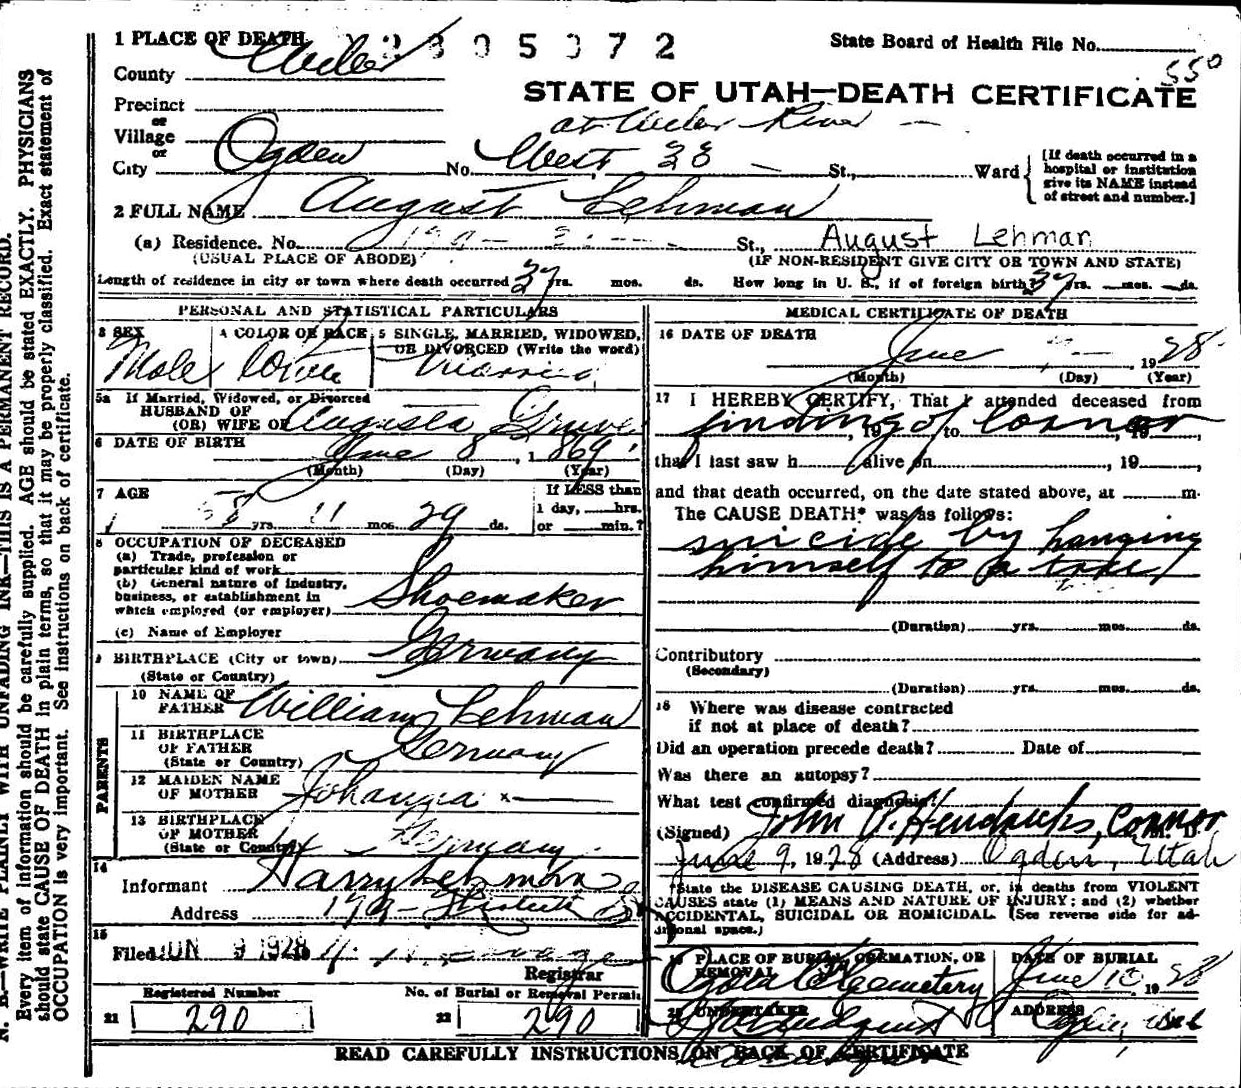 1 PLACE OF DEATH 2305072 State Board of Health File No.
550
County Weber
STATE OF UTAH—DEATH CERTIFICATE
Precinct
or
Village
or
at Weber River
City Ogden No. West 28 St., Ward
[If death occurred in a
hospital or institution
give its NAME instead
of street and number.]
2 FULL NAME August Lehman
(a) Residence. No. St., August Lehman
(USUAL PLACE OF ABODE) (IF NON-RESIDENT GIVE CITY OR TOWN AND STATE)
Length of residence in city or town where death occurred 37 yrs. mos. ds. How long in U. S., if of foreign birth? 37 yrs. mos. ds.
PERSONAL AND STATISTICAL PARTICULARS
3 SEX
Male
4 COLOR OR RACE
White
5 SINGLE, MARRIED, WIDOWED,
OR DIVORCED (Write the word)
Married
5a If Married, Widowed, or Divorced
HUSBAND OF
(OR) WIFE OF Augusta
6 DATE OF BIRTH June 8, 1869
(Month) (Day) (Year)
7 AGE
58 yrs. 11 mos. 29 ds.
If LESS than
1 day, hrs.
or min.?
8 OCCUPATION OF DECEASED
(a) Trade, profession or
particular kind of work
(b) General nature of industry,
business, or establishment in
which employed (or employer) Shoemaker
(c) Name of Employer
9 BIRTHPLACE (City or town) Germany
(State or Country)
PARENTS
10 NAME OF
FATHER William Lehman
11 BIRTHPLACE
OF FATHER Germany
(State or Country)
12 MAIDEN NAME
OF MOTHER Johanna x
13 BIRTHPLACE
OF MOTHER
(State or Country) Germany
14
Informant Harry Lehman
Address
15
Filed JUN 9 1928
Registrar
Registered Number
21 290
No. of Burial or Removal Permit
22 290
MEDICAL CERTIFICATE OF DEATH
16 DATE OF DEATH
June 7 1928
(Month) (Day) (Year)
17 I HEREBY CERTIFY, That I attended deceased from
finding of Coronor, 19 to , 19
that I last saw h alive on , 19
and that death occurred, on the date stated above, at m.
The CAUSE DEATH* was as follows:
suicide by hanging
himself to a tree
(Duration) yrs. mos. ds.
Contributory
(Secondary)
(Duration) yrs. mos. ds.
18 Where was disease contracted
if not at place of death?
Did an operation precede death? Date of
Was there an autopsy?
What test confirmed diagnosis?
(Signed) John P. Hendricks, Coronor M. D.
June 9, 1928 (Address) Ogden, Utah
*State the DISEASE CAUSING DEATH, or, in deaths from VIOLENT
CAUSES state (1) MEANS AND NATURE OF INJURY; and (2) whether
ACCIDENTAL, SUICIDAL OR HOMICIDAL. (See reverse side for ad-
ditional space.)
19 PLACE OF BURIAL, CREMATION, OR
REMOVAL
Ogden City Cemetery
DATE OF BURIAL
June 10 1928
20 UNDERTAKER
Lindquist
ADDRESS
Ogden, Utah
READ CAREFULLY INSTRUCTIONS ON BACK OF CERTIFICATE
N. B.—WRITE PLAINLY WITH UNFADING INK—THIS IS A PERMANENT RECORD.
Every item of information should be carefully supplied. AGE should be stated EXACTLY. PHYSICIANS
should state CAUSE OF DEATH in plain terms, so that it may be properly classified. Exact statement of
OCCUPATION is very important. See instructions on back of certificate.